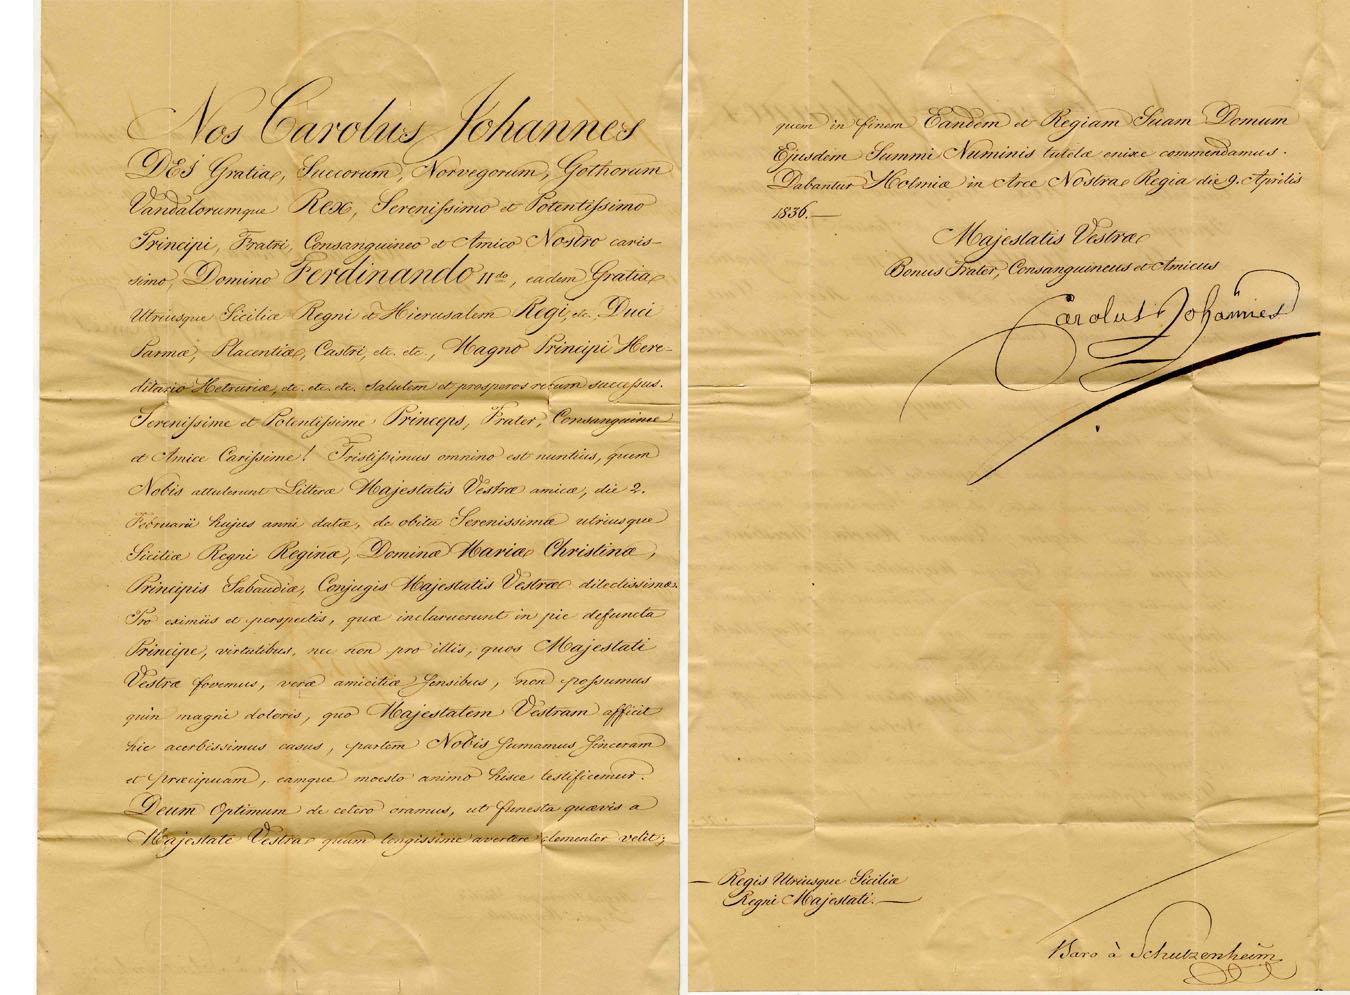 Nos Carolus Johannes
DEI Gratia, Suecorum, Norvegorum, Gothorum
Vandalorumque Rex, Serenissimo et Potentissimo
Principi, Fratri, Consanguineo et Amico Nostro caris-
simo, Domino Ferdinando IIdo, eadem Gratia
Utriusque Siciliæ Regni et Hierusalem Regi, etc. Duci
Parmæ, Placentiæ, Castri, etc. etc., Magno Principi Here-
ditario Hetruriæ, etc. etc. etc. Salutem et prosperos rerum successus.
Serenissime et Potentissime Princeps, Frater, Consanguinee
et Amice Carissime! Tristissimus omnino est nuntius, quem
Nobis attulerunt Litteræ Majestatis Vestræ amicæ, die 2.
Februarii hujus anni datæ, de obitu Serenissimæ utriusque
Siciliæ Regni Reginæ, Dominæ Mariæ Christinæ,
Principis Sabaudiæ, Conjugis Majestatis Vestræ dilectissimæ.
Pro eximiis et perspectis, quæ inclaruerunt in pie defuncta
Principe, virtutibus, nec non pro illis, quos Majestati
Vestræ fovemus, veræ amicitiæ sensibus, non possumus
quin magni doloris, quo Majestatem Vestram afficit
hic acerbissimus casus, partem Nobis sumamus sinceram
et præcipuam, eamque moesto animo hisce testificemur.
Deum Optimum de cetero oramus, ut funesta quævis a
Majestate Vestra quam longissime avertere clementer velit;
quem in finem Eandem et Regiam Suam Domum
Ejusdem Summi Numinis tutelæ enixe commendamus.
Dabantur Holmiæ in Arce Nostra Regia die 9. Aprilis
1836.—
Majestatis Vestræ
Bonus Frater, Consanguineus et Amicus
Carolus Johannes
— Regis Utriusque Siciliæ
Regni Majestati. —
Baro à Schutzenheim